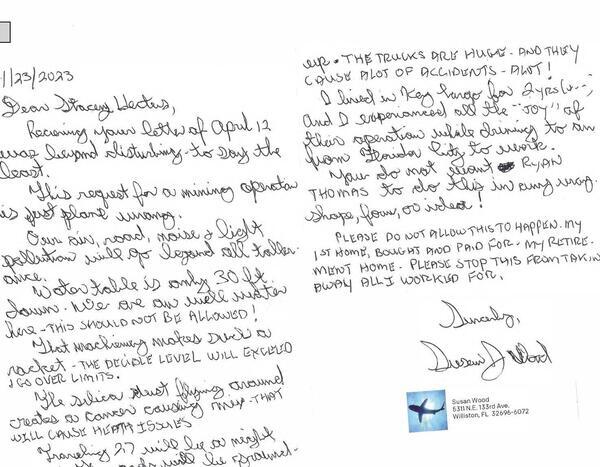 1/23/2023
Dear Stacey Hectus,
Recieving your letter of April 12
was beyond disturbing - to say the
least.
This request for a mining operation
is just plane wrong.
Our air, road, noise & light
pollution will go beyond all toller-
ance.
Water table is only 30 ft.
down. We are on well water
here - THIS SHOULD NOT BE ALLOWED!
That machinery makes such a
racket - THE DECIBLE LEVEL WILL EXCEED
& GO OVER LIMITS.
The silica dust flying around
creates a cancer causing mix - THAT
WILL CAUSE HEATH ISSUES
Traveling 27 will be a night
will be ground-
up. THE TRUCKS ARE HUGE - AND THEY
CAUSE ALOT OF ACCIDENTS - ALOT!
I lived in Key Largo for 2 yrs
and I experienced all the "JOY" of
their operation while driving to an
from Florida City to work.
You do not want RYAN
THOMAS to do this in any way,
shape, form, or idea!
PLEASE DO NOT ALLOW THIS TO HAPPEN. MY
1ST HOME, BOUGHT AND PAID FOR - MY RETIRE-
MENT HOME. PLEASE STOP THIS FROM TAKIN
AWAY ALL I WORKED FOR.
Sincerly,
Susan J Wood
Susan Wood
5311 N.E. 133rd Ave.
Williston, FL 32696-6072